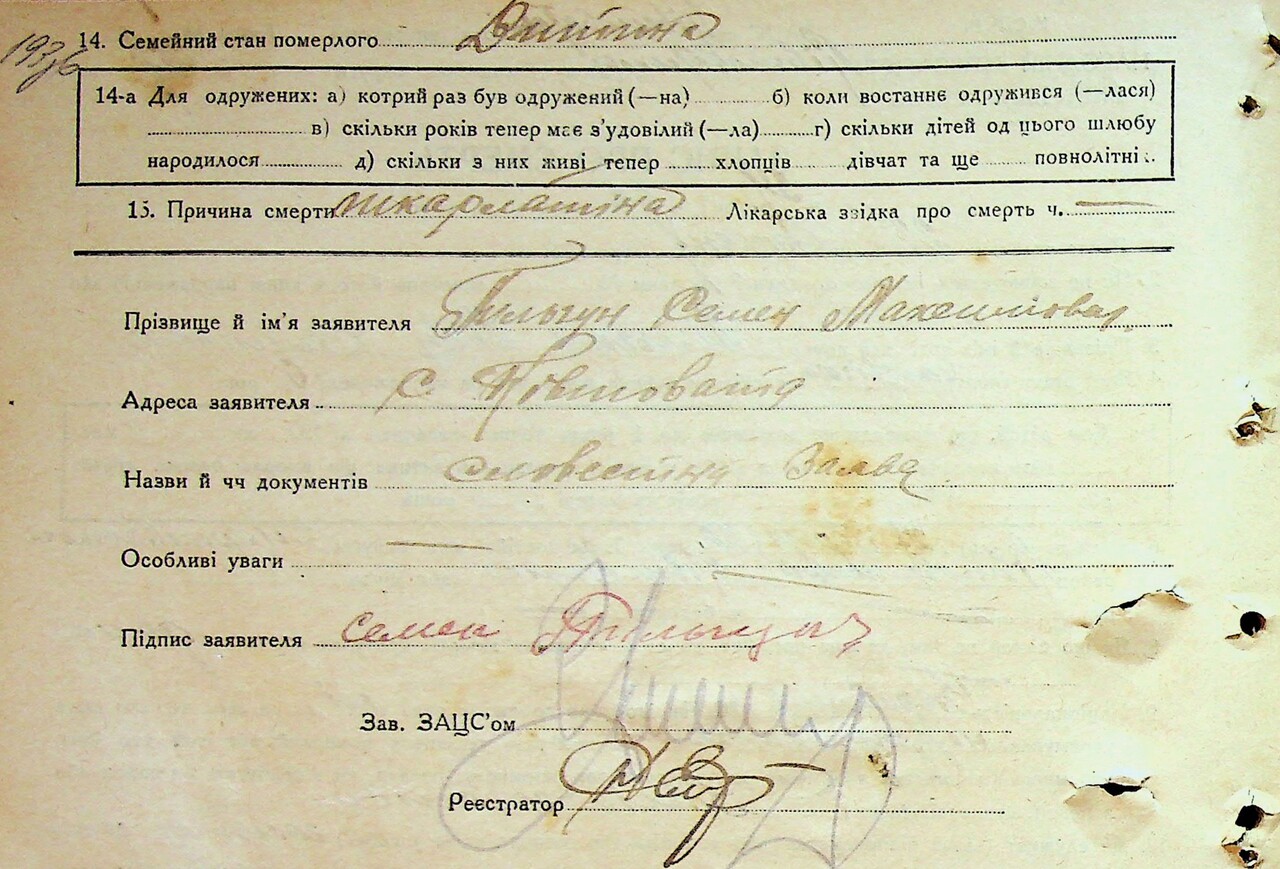 14. Семейний стан померлого Дитина
14-а Для одружених: а) котрий раз був одружений (—на) б) коли востаннє одружився (—лася)
в) скільки років тепер має з'удовілий (—ла) г) скільки дітей од цього шлюбу
народилося д) скільки з них живі тепер хлопців дівчат та ще повнолітні
15. Причина смерти шкарлатіна Лікарська звідка про смерть ч. —
Прізвище й ім'я заявителя Семен
Адреса заявителя с. Жовтовата
Назви й чч документів словестна заява
Особливі уваги —
Підпис заявителя Семен
Зав. ЗАЦС'ом
Реєстратор